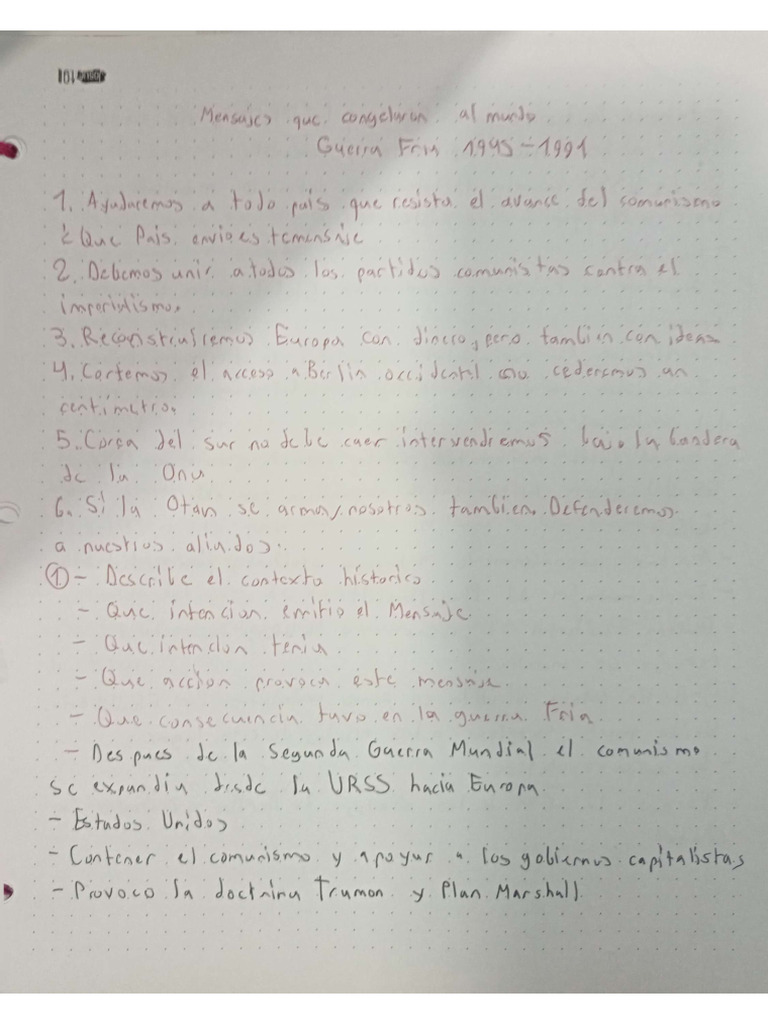 Mensajes que congelaron al mundo
Guerra Fria 1945-1991
1. Ayudaremos a todo pais que resista el avance del comunismo
¿Que Pais envio es
2. Debemos unir a todos los partidos comunistas contra el
imperialismo.
3. Reconstruiremos Europa con dinero, pero tambien con ideas
4. Cortemos el acceso a Berlin occidental no cederemos un
centimetro.
5. Corea del sur no debe caer intervendremos bajo la bandera
de la Onu
6. Si la Otan se arma, nosotros tambien. Defenderemos
a nuestros aliados.
① - Describe el contexto historico
- Que intencion emitio el Mensaje
- Que intencion tenia
- Que accion provoca este mensaje
- Que consecuencia tuvo en la guerra Fria
- Despues de la Segunda Guerra Mundial el comunismo
se expandia desde la URSS hacia Europa
- Estados Unidos
- Contener el comunismo y apoyar a los gobiernos capitalistas
- Provoco la doctrina Truman y Plan Marshall